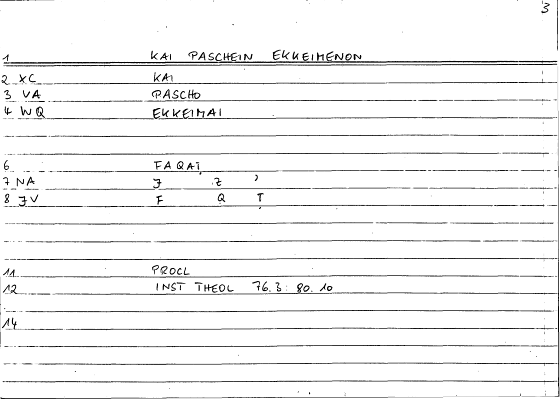 3
1 KAI PASCHEIN EKKEIMENON
2 XC KAI
3 VA PASCHO
4 WQ EKKEIMAI
6 FAQAT
7 NA J Z ,
8 JV F Q T
11 PROCL
12 INST THEOL 76.3: 80.10
14